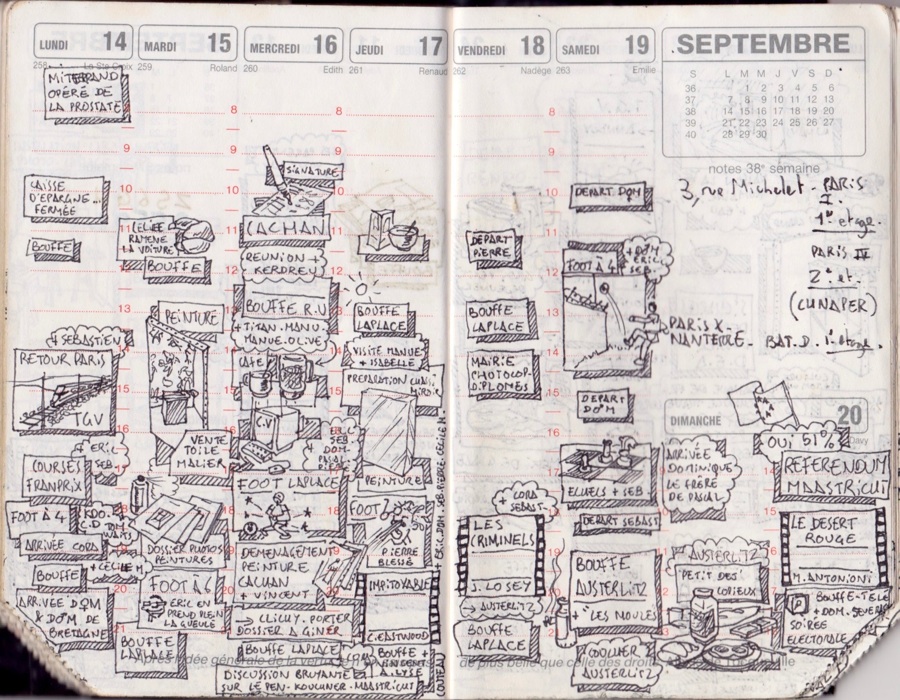 LUNDI 14
258 La Ste Croix
MITTERRAND
OPÉRÉ DE
LA PROSTATE
CAISSE
D'EPARGNE...
FERMÉE
BOUFFE
+ SEBASTIEN
RETOUR PARIS
TGV
+ ERIC
SEB
COURSES
FRANPRIX
FOOT À 4
ARRIVÉE CORA
BOUFFE
ARRIVÉE DOM
& DOM DE
BRETAGNE
MARDI 15
259 Roland
RAMENE
LA VOITURE
BOUFFE
PEINTURE
VENTE
TOILE
MALIER
DOSSIER PHOTOS
PEINTURES
+ CÉCILE M.
FOOT À 6
ERIC EN
PREND PLEIN
LA GUEULE
BOUFFE
LAPLACE
MERCREDI 16
260 Edith
8
9
SIGNATURE
CACHAN
REUNION +
KERDREU
BOUFFE R.U
+ TITAN. MANU.
MANUE. OLIVE
CAFE
C.V
FOOT LAPLACE
DEMENAGEMENT
PEINTURE
CACHAN
+ VINCENT
→ CLICHY. PORTER
DOSSIER A GINER
BOUFFE LAPLACE
DISCUSSION BRUYANTE
SUR LE PEN - KOUCHNER - MAASTRICHT
JEUDI 17
261 Renaud
8
9
10
11
12
13
BOUFFE
LAPLACE
VISITE MANUE
+ ISABELLE
PREPARATION
PEINTURE
FOOT
PIERRE
BLESSÉ
IMPITOYABLE
C. EASTWOOD
BOUFFE
+ VINCENT
VENDREDI 18
262 Nadège
DEPART
PIERRE
BOUFFE
LAPLACE
MAIRIE
PHOTOCOP.
DIPLOMES
+ CORA
SEBAST.
LES
CRIMINELS
J. LOSEY
→ AUSTERLITZ
BOUFFE
LAPLACE
SAMEDI 19
263 Emilie
8
9
DEPART DOM
FOOT À 4
+ DOM
ERIC
SEB.
DEPART
DOM
ECHECS + SEB
DEPART SEBAST
BOUFFE
AUSTERLITZ
+ "LES MOULES"
COUCHER
AUSTERLITZ
SEPTEMBRE
S L M M J V S D
36 1 2 3 4 5 6
37 7 8 9 10 11 12 13
38 14 15 16 17 18 19 20
39 21 22 23 24 25 26 27
40 28 29 30
notes 38e semaine
3, rue Michelet - PARIS
I.
1er étage.
PARIS IV
2e et.
(CUNAPER)
PARIS X -
NANTERRE - BAT. D. 1er étage.
DIMANCHE 20
Davy
OUI 51%
REFERENDUM
MAASTRICHT
ARRIVÉE
DOMINIQUE
LE FRÈRE
DE PASCAL
LE DESERT
ROUGE
M. ANTONIONI
AUSTERLITZ
PETIT DEJ.
COPIEUX
BOUFFE-TELE
+ DOM. SEVERI
SOIRÉE
ELECTORALE
de plus belle que celle des droits